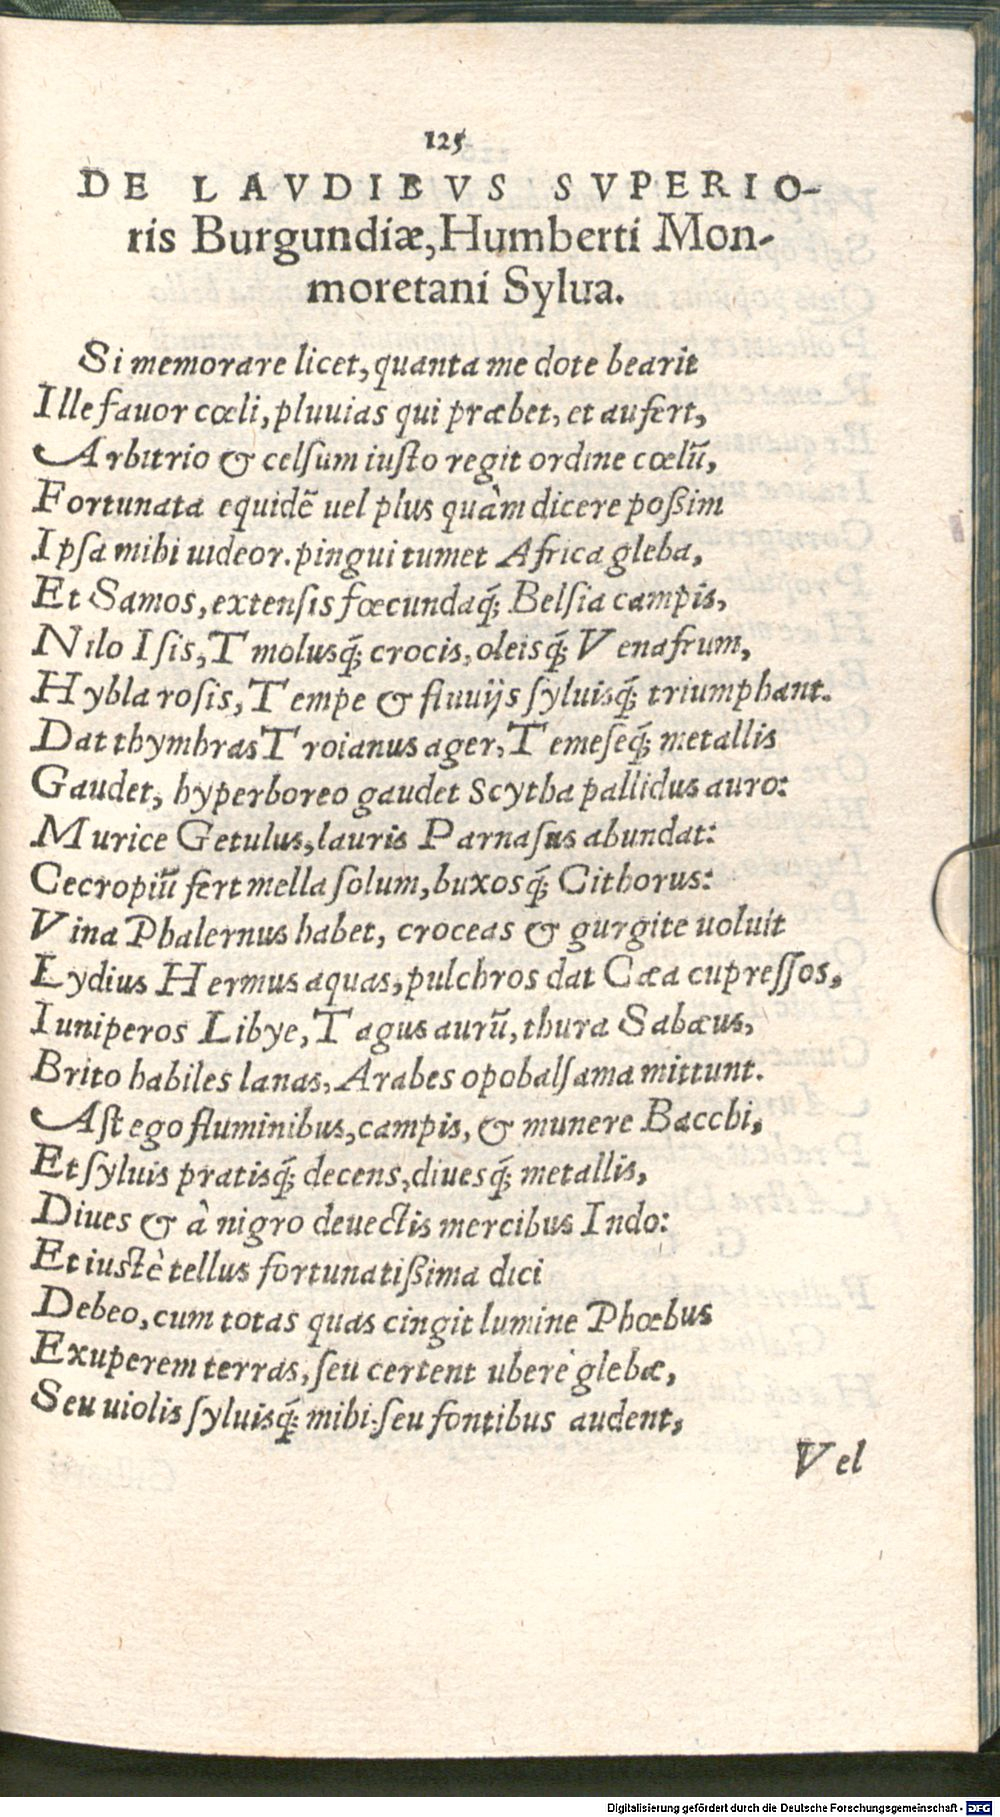 125
DE LAVDIBVS SVPERIO-
ris Burgundiæ, Humberti Mon-
moretani Sylua.
Si memorare licet, quanta me dote bearit
Ille fauor cœli, pluuias qui præbet, et aufert,
Arbitrio & celsum iusto regit ordine cœlũ,
Fortunata equidẽ uel plus quàm dicere poßim
Ipsa mihi uideor. pingui tumet Africa gleba,
Et Samos, extensis fœcundaq́; Belsia campis,
Nilo Isis, Tmolusq́; crocis, oleisq́; Venafrum,
Hybla rosis, Tempe & fluuijs syluisq́; triumphant.
Dat thymbras Troianus ager, Temeseq́; metallis
Gaudet, hyperboreo gaudet Scytha pallidus auro:
Murice Getulus, lauris Parnasus abundat:
Cecropiũ fert mella solum, buxosq́; Cithorus:
Vina Phalernus habet, croceas & gurgite uoluit
Lydius Hermus aquas, pulchros dat Cæa cupressos,
Iuniperos Libye, Tagus aurũ, thura Sabæus,
Brito habiles lanas, Arabes opobalsama mittunt.
Ast ego fluminibus, campis, & munere Bacchi,
Et syluis pratisq́; decens, diuesq́; metallis,
Diues & à nigro deuectis mercibus Indo:
Et iustè tellus fortunatißima dici
Debeo, cum totas quas cingit lumine Phœbus
Exuperem terras, seu certent ubere glebæ,
Seu uiolis syluisq́; mihi, seu fontibus audent,
Vel
Digitalisierung gefördert durch die Deutsche Forschungsgemeinschaft - DFG